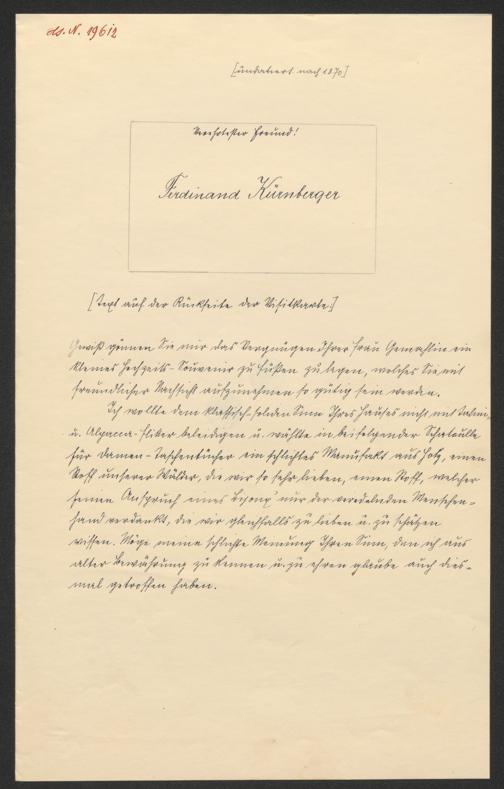 ds. N. 19612
[undatiert nach 1870]
Verehrtester Freund!
Ferdinand Kürnberger
[Text auf der Rückseite der Visitkarte:]
Gewiß gönnen Sie mir das Vergnügen Ihrer Frau Gemahlin ein
kleines Hochzeits-Souvenir zu Füßen zu legen, welches Sie mit
freundlicher Nachsicht aufzunehmen so gütig sein werden.
Ich wollte dem klassisch-soliden Sinn Ihres Hauses nicht mit Talmi-
u. Alpacca-Flitter beleidigen u. wählte in beifolgender Schatoulle
für Damen-Taschentücher ein schlichtes Manufakt aus Holz, einen
Stoff unserer Wälder, die wir so sehr lieben, einen Stoff, welcher
seinen Anspruch eines nur der veredelnden Menschen-
hand verdankt, die wir gleichfalls zu lieben u. zu schätzen
wissen. Möge meine schlichte Meinung Ihren Sinn, den ich aus
alter Bewährung zu kennen u. zu ehren glaube auch dies-
mal getroffen haben.